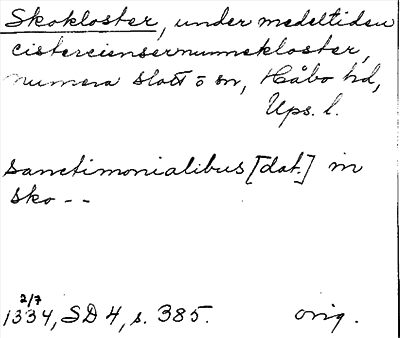 Skokloster, under medeltiden
cisterciensernunnekloster,
numera slott o sn, Håbo hd,
Ups. l.
sanctimonialibus [dat.] in
sko --
2/7
1334, SD 4, s. 385. orig.